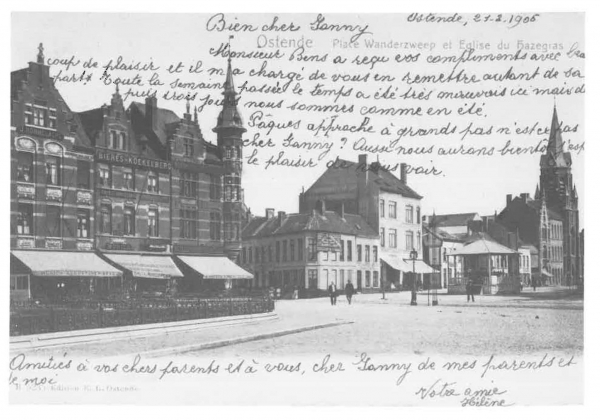 Bien cher Ganny
Ostende, 21.2.1905
Ostende Place Wanderzweep et Eglise du Hazegras
Monsieur Bens a reçu vos compliments avec beau
coup de plaisir et il m'a chargé de vous en remettre autant de sa
part. Toute la semaine passée le temps a été très mauvais ici mais de
puis trois jours nous sommes comme en été.
Pâques approche à grands pas n'est ce pas
cher Ganny? Aussi nous aurons bientôt, j'esp
le plaisir de vous voir.
BIÈRES
Amitiés à vos chers parents et à vous, cher Ganny de mes parents et
de moi
Edition
Votre amie
Hélène